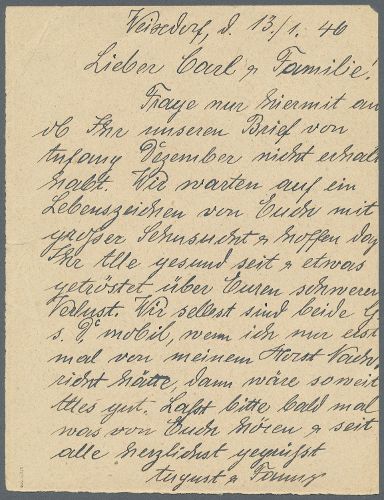 Weixdorf, d. 13./1. 46
Lieber Carl & Familie!
Frage nur hiermit an
ob Ihr unseren Brief von
Anfang Dezember nicht erhal
habt. Wir warten auf ein
Lebenszeichen von Euch mit
großer Sehnsucht & hoffen daß
Ihr Alle gesund seit & etwas
getröstet über Euren schweren
Verlust. Wir selbst sind beide G
s. D. mobil, wenn ich nur erst
mal von meinem Horst Nach
richt hätte, dann wäre soweit
Alles gut. Laßt bitte bald mal
was von Euch hören & seit
alle herzlichst gegrüsst
August & Fanny